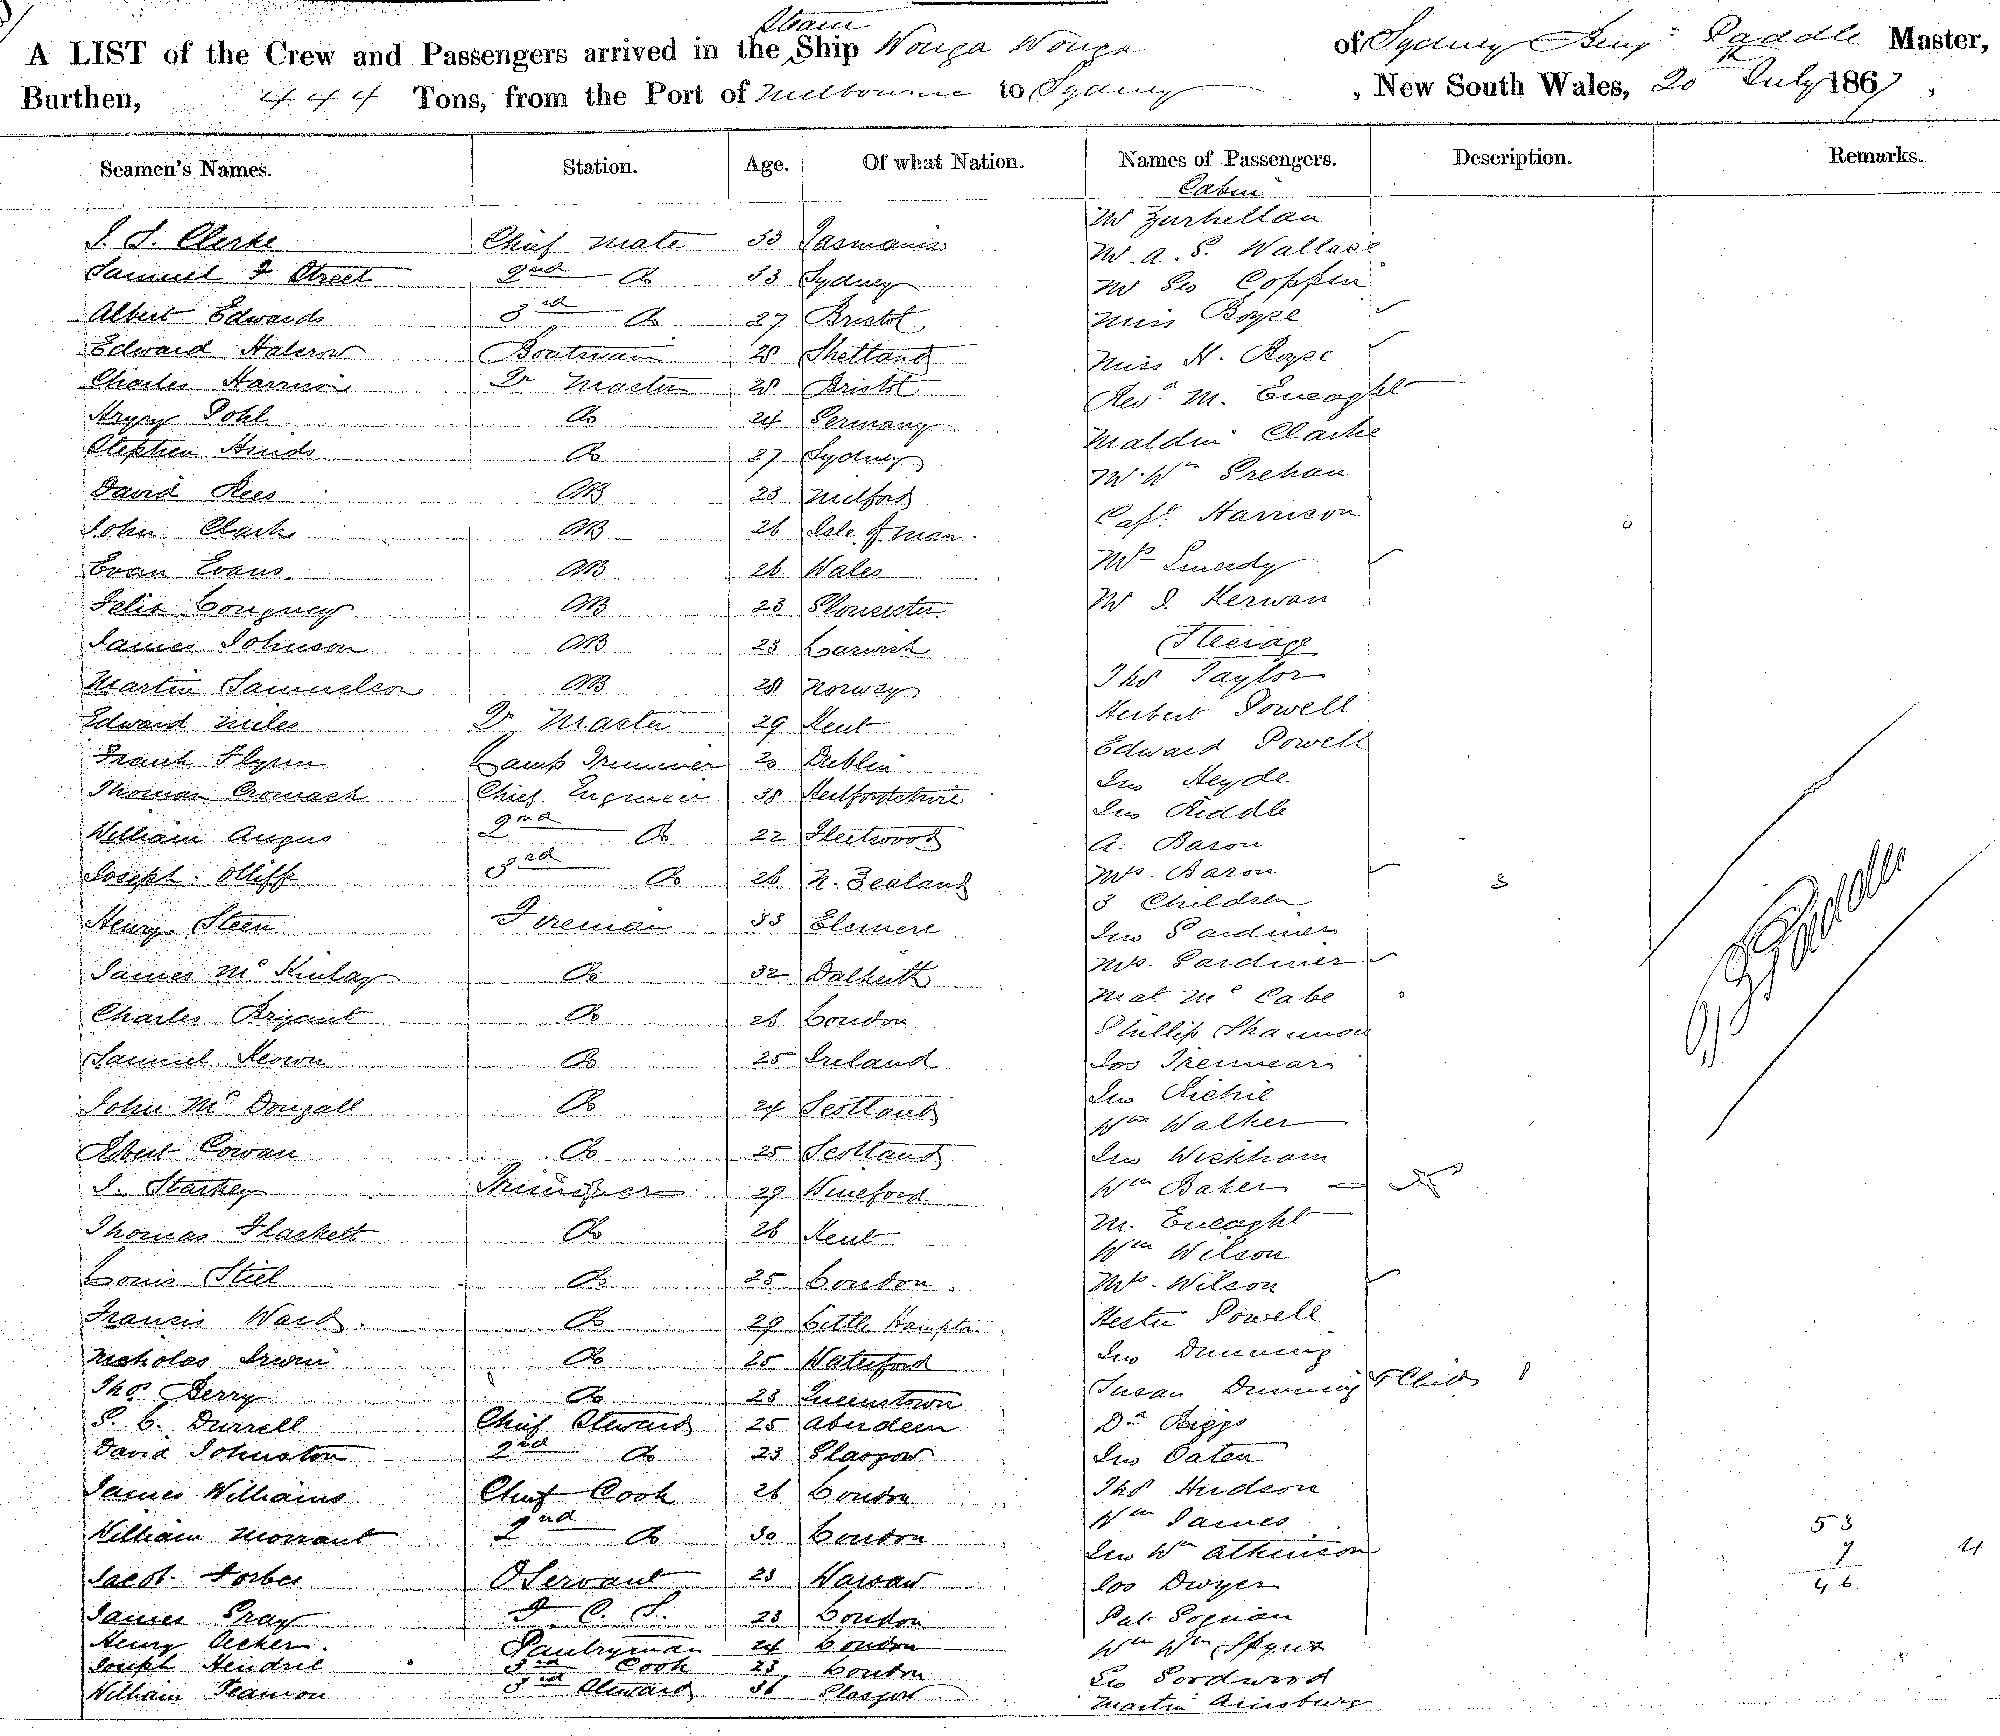 A LIST of the Crew and Passengers arrived in the Steam Ship Wonga Wonga of Sydney Paddle Master,
Burthen, 444 Tons, from the Port of Melbourne to Sydney , New South Wales, 20 July 1867,
Seamen's Names. Station. Age. Of what Nation. Names of Passengers. Description. Remarks.
Cabin
Mr Zurhellan
Clerke Chief Mate 33 Tasmania
Mr A. S. Wallace
Samuel F Street 2nd Do 33 Sydney
Mr Geo Coppin
Albert Edwards 3rd Do 27 Bristol
Miss
Edward Halcrow Boatswain 28 Shetland
Miss H.
Charles Harrison Qr Master 28 Bristol
Revd M.
Pohl Do 24 Germany
Clarke
Stephen Hinds Do 27 Sydney
Mr Wm
David Rees AB 23 Milford
Capt. Harrison
John Clark AB 26 Isle of Man
Evan Evans AB 26 Wales
Mrs
Felix AB 23 Gloucester
Mr J. Kerwan
James Johnson AB 23
Steerage
Martin Samuelson AB 28 Norway
Thos Taylor
Edward Miles Qr Master 29 Kent
Herbert Powell
Frank Flynn Lamp Trimmer 20 Dublin
Edward Powell
Thomas Chief Engineer 38
Jno Heyde
Jno Riddle
William Angus 2nd Do 22 Fleetwood
A. Baron
Joseph Olliffe 3rd Do 26 N. Zealand
Mrs. Baron
3 Children 3
Henry Steen Fireman 33
Jno Gardiner
Mrs. Gardiner
James McKinlay Do 32 Dalkeith
Mat McCabe
Charles Bryant Do 26 London
Phillip Shannon
Samuel Keown Do 25 Ireland
Jos
John McDougall Do 24 Scotland
Jno Richie
Wm Walker
Robert Cowan Do 25 Scotland
Jno Wickham
J. Starkey Trimmer 29
Wm Baker
Thomas Do 26 Kent
M.
Wm Wilson
Louis Stiel Do 25 London
Mrs. Wilson
Francis Ward Do 29 Little Hampton
Hester Powell
Nicholas Irwin Do 25 Waterford
Jno Dunning
Thos Berry Do 23 Queenstown
Susan Dunning & Child 1
Durrell Chief Steward 25 Aberdeen
Riggs
David Johnston 2nd Do 23 Glasgow
Jno Oaten
James Williams Chief Cook 26 London
Thos Hudson
William Morrant 2nd Do 30 London
Wm James
53
Jno Wm Atkinson
7 4
Jacob Forbes Servant 23 Warsaw
Jos Dwyer
46
James Gray 23 London
Pat
Henry Acker Pantryman 24 London
Wm Wm
Joseph Hendrie 3rd Cook 23 London
Geo
William Pearson 3rd Steward 31 Glasgow
Martin